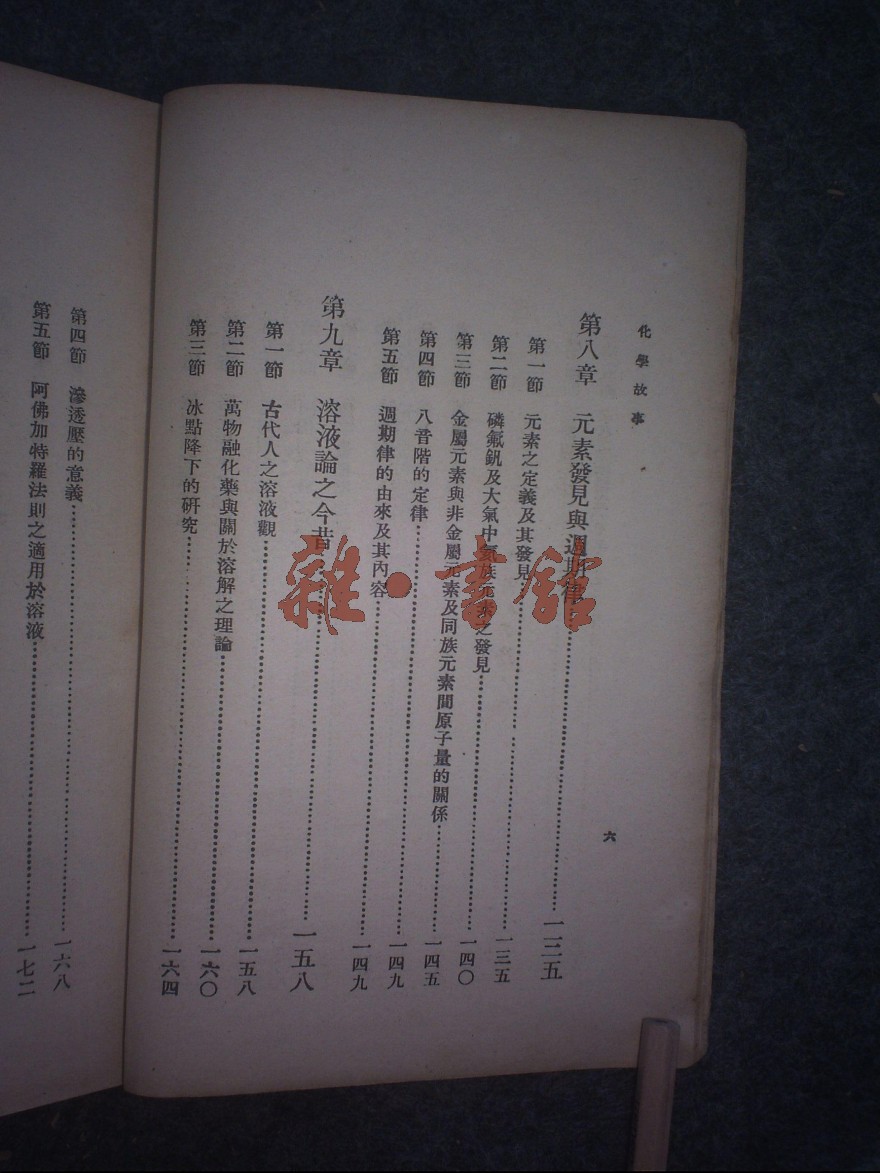 化學故事
六
第八章 元素發見與週期律……一二五
第一節 元素之定義及其發見……一三五
第二節 磷氟釩及大氣中族元素之發見……一四〇
第三節 金屬元素與非金屬元素及同族元素間原子量的關係……一四五
第四節 八音階的定律……一四九
第五節 週期律的由來及其內容……一四九
第九章 溶液論之今昔……一五八
第一節 古代人之溶液觀……一五八
第二節 萬物融化藥與關於溶解之理論……一六〇
第三節 冰點降下的研究……一六四
第四節 滲透壓的意義……一六八
第五節 阿佛加特羅法則之適用於溶液……一七二
雜·書館